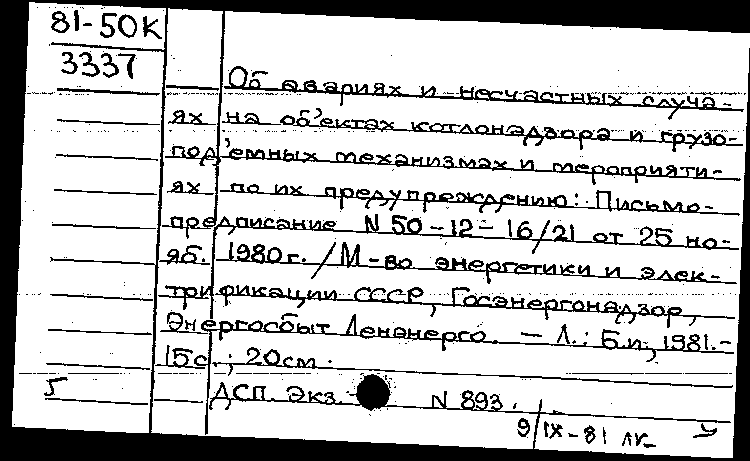 81-50К
3337
Об авариях и несчастных случа-
ях на об'ектах котлонадзора и грузо-
под'емных механизмах и мероприяти-
ях по их предупреждению: Письмо-
предписание N 50-12-16/21 от 25 но-
яб. 1980г. / М-во энергетики и элек-
трификации СССР, Госэнергонадзор,
Энергосбыт Ленэнерго. - Л.: Б.и., 1981.-
15с.; 20см.
5 ДСП. Экз. N 893.
9/IX-81